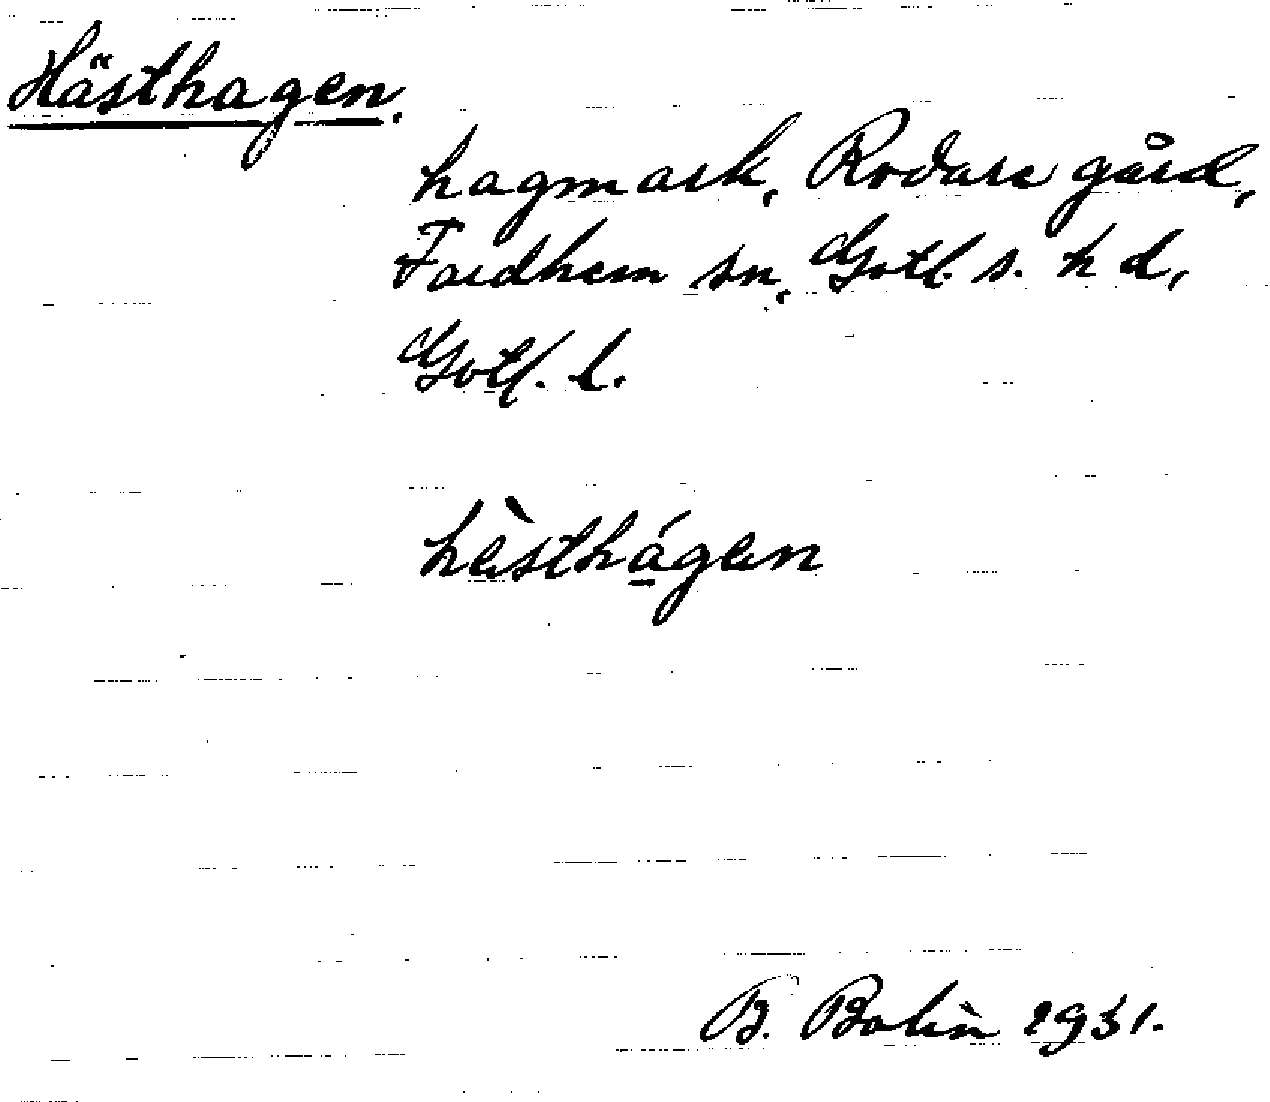 Hästhagen.
hagmark, Rodare gård,
Fardhem sn, Gotl. s. hd,
Gotl. l.
hèsthágen
B. Bolin 1931.